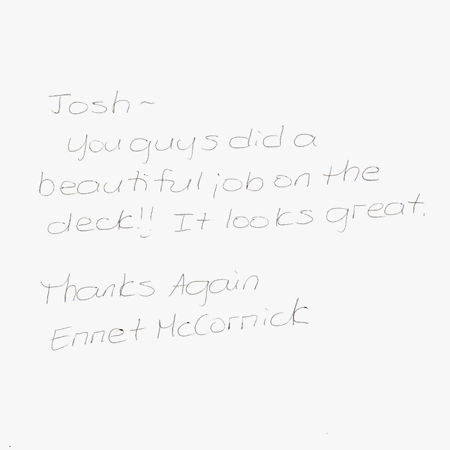 Josh~
You guys did a
beautiful job on the
deck!! It looks great.
Thanks Again
Ennet McCornick